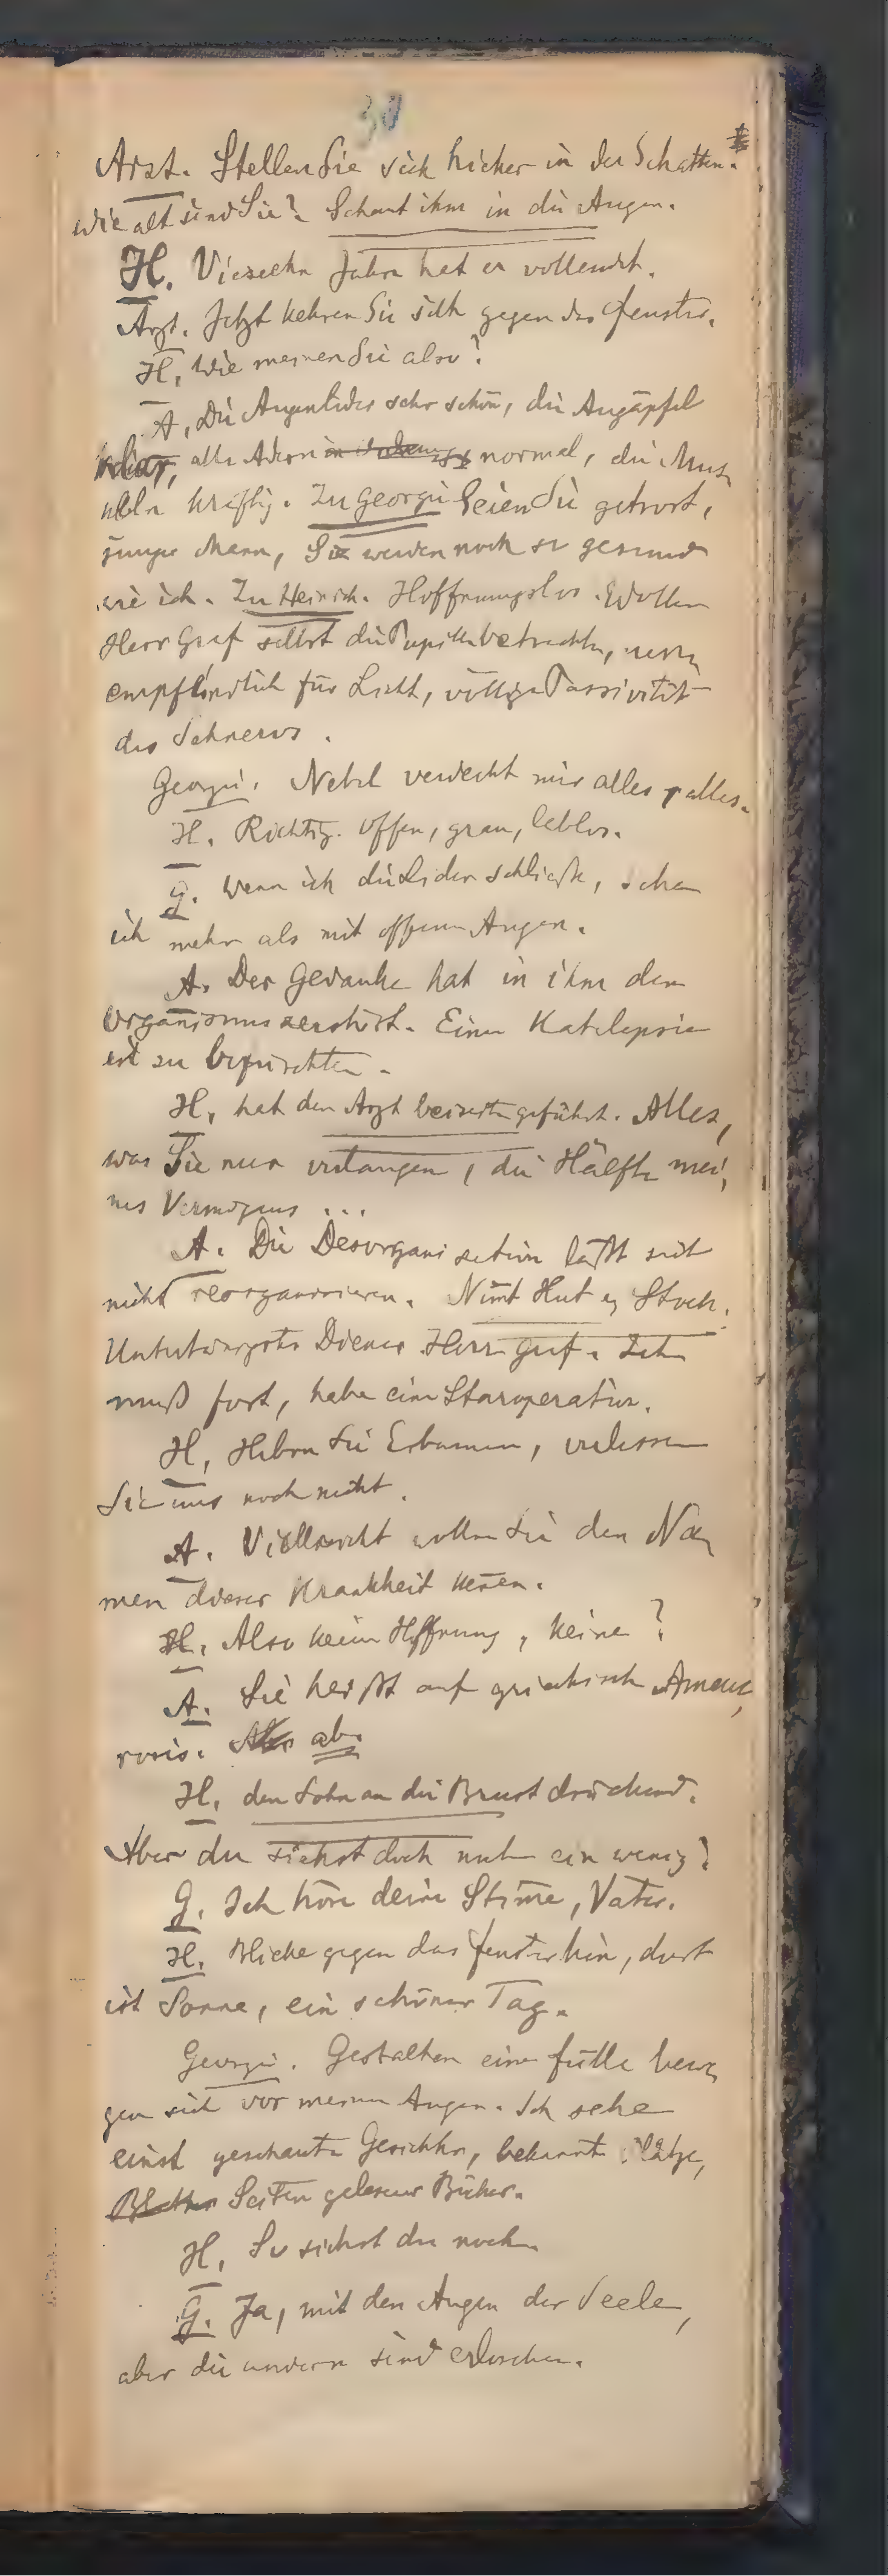 30
Arzt. Stellen Sie sich hieher in den Schatten.
Wie alt sind Sie? Schaut ihm in die Augen.
H. Vierzehn Jahre hat er vollendet.
Arzt. Jetzt kehren Sie sich gegen das Fenster.
H. Wie meinen Sie also?
A. Die Augenlider sehr schön, die Augäpfel
klar, alle Adern normal, die Mus-
keln kräftig. Zu Georgie Seien Sie getrost,
junger Mann, Sie werden noch so gesund
wie ich. Zu Heinrich. Hoffnungslos. Wollen
Herr Graf selbst die Pupille betrachten, un-
empfindlich für Licht, völlige Passivität
des Sehnervs.
Georgie. Nebel verdeckt mir alles, alles.
H. Richtig. Offen, grau, leblos.
G. Wenn ich die Lider schließe, sehe
ich mehr als mit offenen Augen.
A. Der Gedanke hat in ihm den
Organismus zerstört. Eine Katalepsie
ist zu befürchten.
H. hat den Arzt beiseite geführt. Alles,
was Sie nur verlangen, die Hälfte mei-
nes Vermögens ...
A. Die Desorganisation läßt sich
nicht reorganisieren. Nim̅t Hut u Stock.
Untertänigster Diener Herr Graf. Ich
muß fort, habe eine Staroperation.
H. Haben Sie Erbarmen, verlassen
Sie uns noch nicht.
A. Vielleicht wollen Sie den Na-
men dieser Krankheit ken̅en.
H. Also keine Hoffnung, keine?
A. Sie heißt auf griechisch Amau-
rosis. ab.
H. den Sohn an die Brust drückend.
Aber du siehst doch noch ein wenig?
G. Ich höre deine Stim̅e, Vater.
H. Blicke gegen das Fenster hin, dort
ist Sonne, ein schöner Tag.
Georgie. Gestalten eine Fülle bewe-
gen sich vor meinen Augen. Ich sehe
einst geschaute Gesichter, bekannte Plätze,
Blätter Seiten gelesener Bücher.
H. So siehst du noch.
G. Ja, mit den Augen der Seele,
aber die andern sind erloschen.